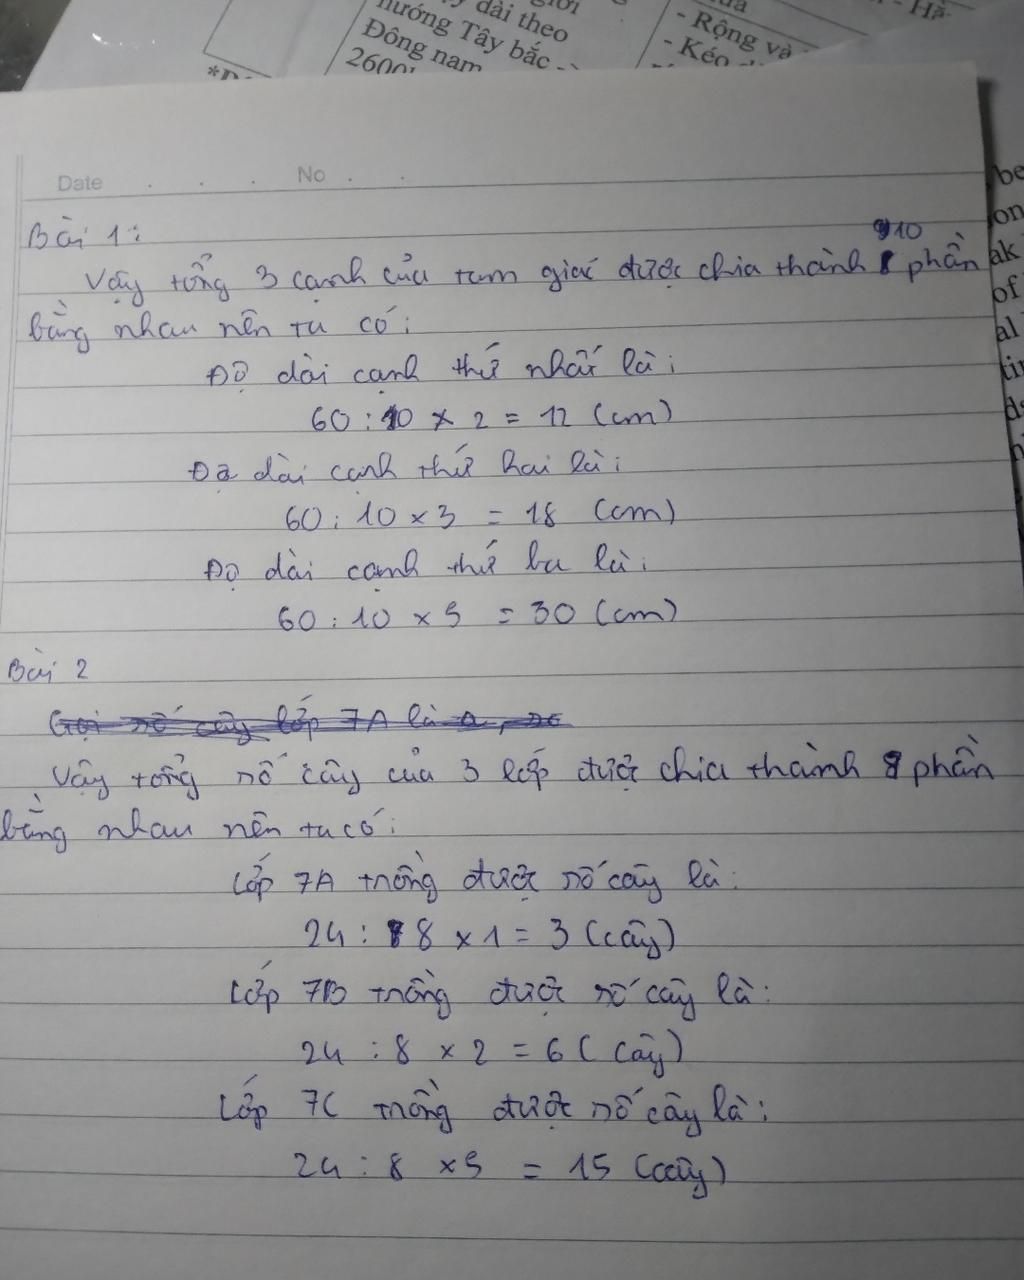 dài theo
hướng Tây bắc -
Đông nam
- Rộng và
- Kéo
Date No
Bài 1:
910
Vậy tổng 3 cạnh của tam giác được chia thành phần
bằng nhau nên ta có:
Độ dài cạnh thứ nhất là:
60 : 10 x 2 = 12 (cm)
Độ dài cạnh thứ hai là:
60 : 10 x 3 = 18 (cm)
Độ dài cạnh thứ ba là:
60 : 10 x 5 = 30 (cm)
Bài 2
Gọi số cây lớp 7A là a,
Vậy tổng số cây của 3 lớp được chia thành 8 phần
bằng nhau nên ta có:
Lớp 7A trồng được số cây là:
24 : 8 x 1 = 3 (cây)
Lớp 7B trồng được số cây là:
24 : 8 x 2 = 6 (cây)
Lớp 7C trồng được số cây là:
24 : 8 x 5 = 15 (cây)